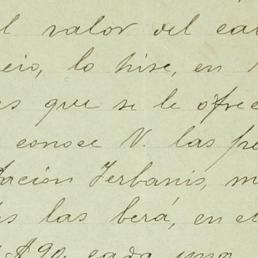 l valor del ca
cio, lo hise, en
s que se le ofrec
conose V. las pe
ación Terbanis, m
s las berá, en el
$90 cada uno